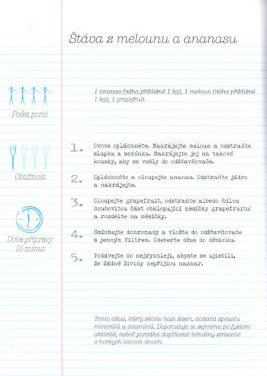 Šťáva z melounu a ananasu
1 ananas (váha přibližně 1 kg), 1 meloun (váha přibližně
1 kg), 1 grapefruit.
Počet porcí
1. Ovoce opláchněte. Nakrájejte meloun a odstraňte
slupku a semínka. Nakrájejte jej na takové
kousky, aby se vešly do odšťavňovače.
Obtížnost
2. Opláchněte a oloupejte ananas. Odstraňte jádro
a nakrájejte.
3. Oloupejte grapefruit, odstraňte albedo (bílou
houbovitou část obklopující měsíčky grapefruitu)
a rozdělte na měsíčky.
Doba přípravy
15 minut
4. Smíchejte dohromady a vložte do odšťavňovače
s jemným filtrem. Odeberte džus do džbánku.
5. Podávejte co nejrychleji, abyste se ujistili,
že žádné živiny nepřijdou nazmar.
Tento džus, který skvěle hasí žízeň, dodává spoustu
minerálů a vitaminů. Doporučuje se zejména po fyzické
aktivitě, neboť pomáhá doplňovat tekutiny ztracené
v horkých letních dnech.